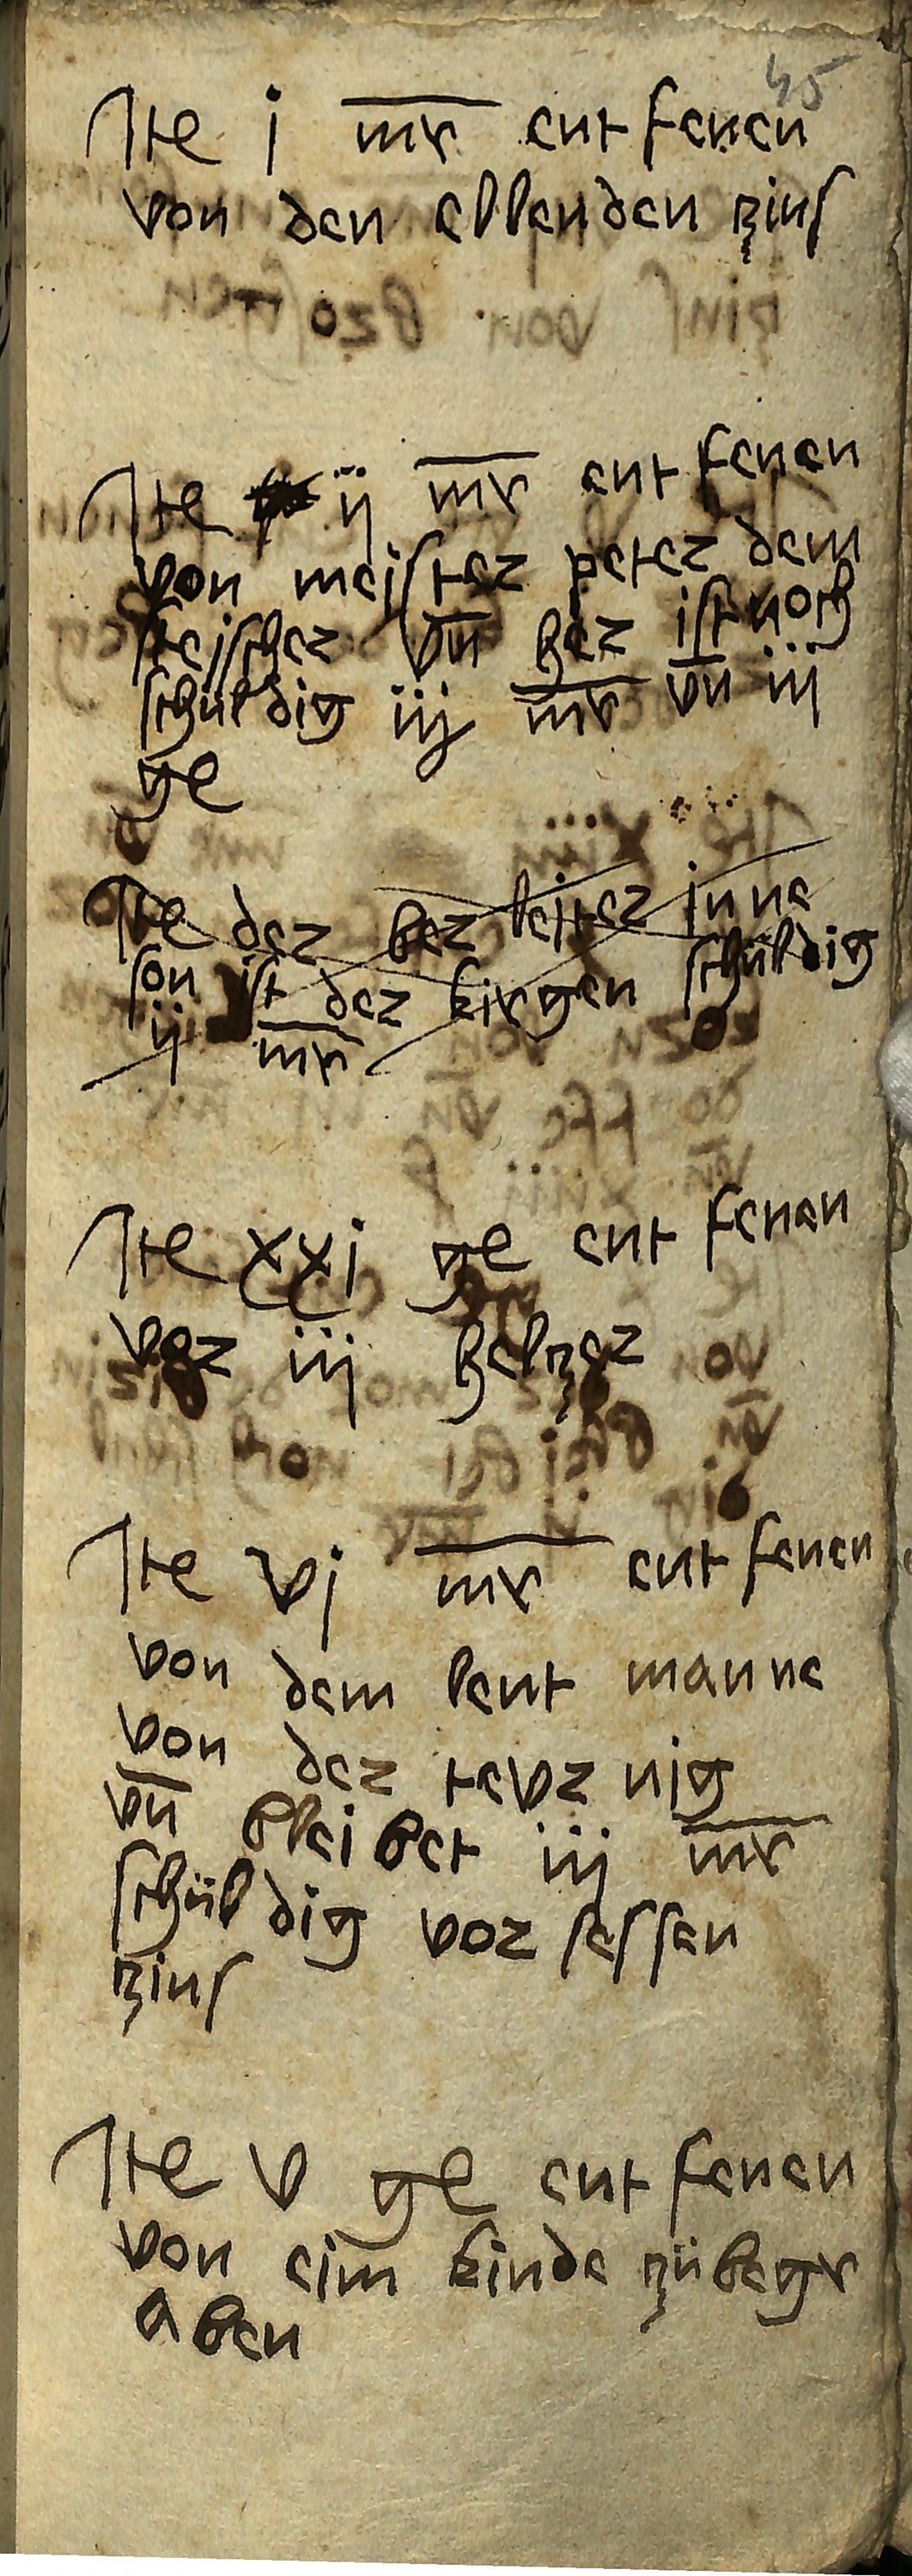 45
Ite i mr ent fenen
von den ellenden zins
Ite ij mr ent fenen
von meister peter dem
fleischer vn her ist noch
schüldig iij mr vn iij
ge
Ite der ber leiter inne
son ist der kirgen schüldig
ij mr
Ite xxi ge ent fenen
vor iij helzer
Ite vi mr ent fenen
von dem lent manne
von der tevr nig
vn blei bet iij mr
schül dig vor sessen
zins
Ite v ge ent fenen
von eim kinde zü begr
aben